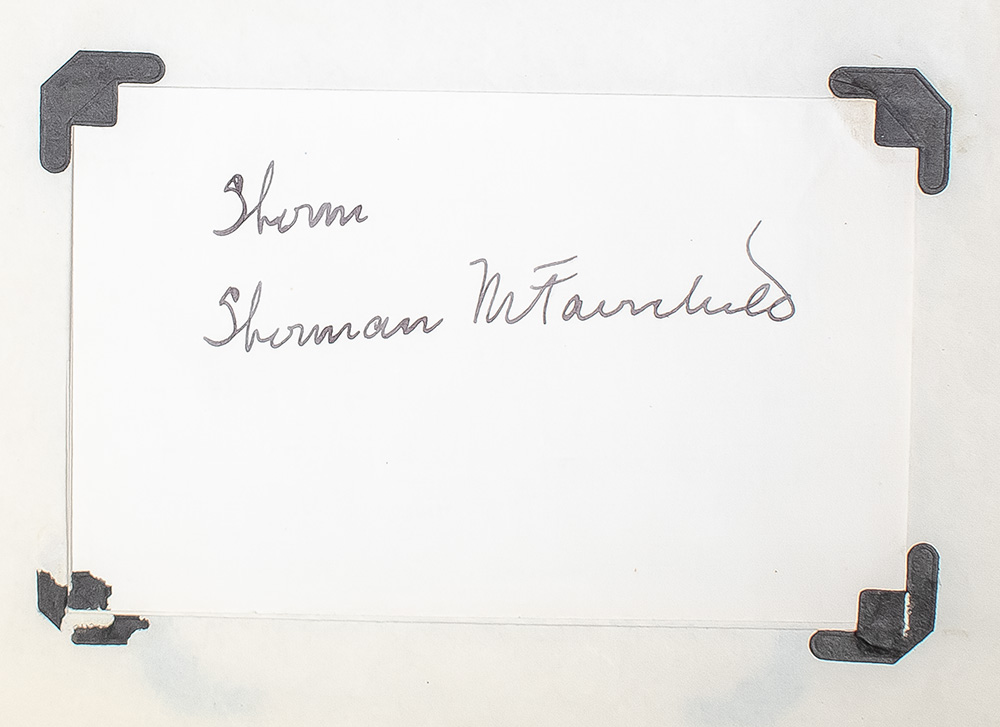 Sherm
Sherman M Fairchild